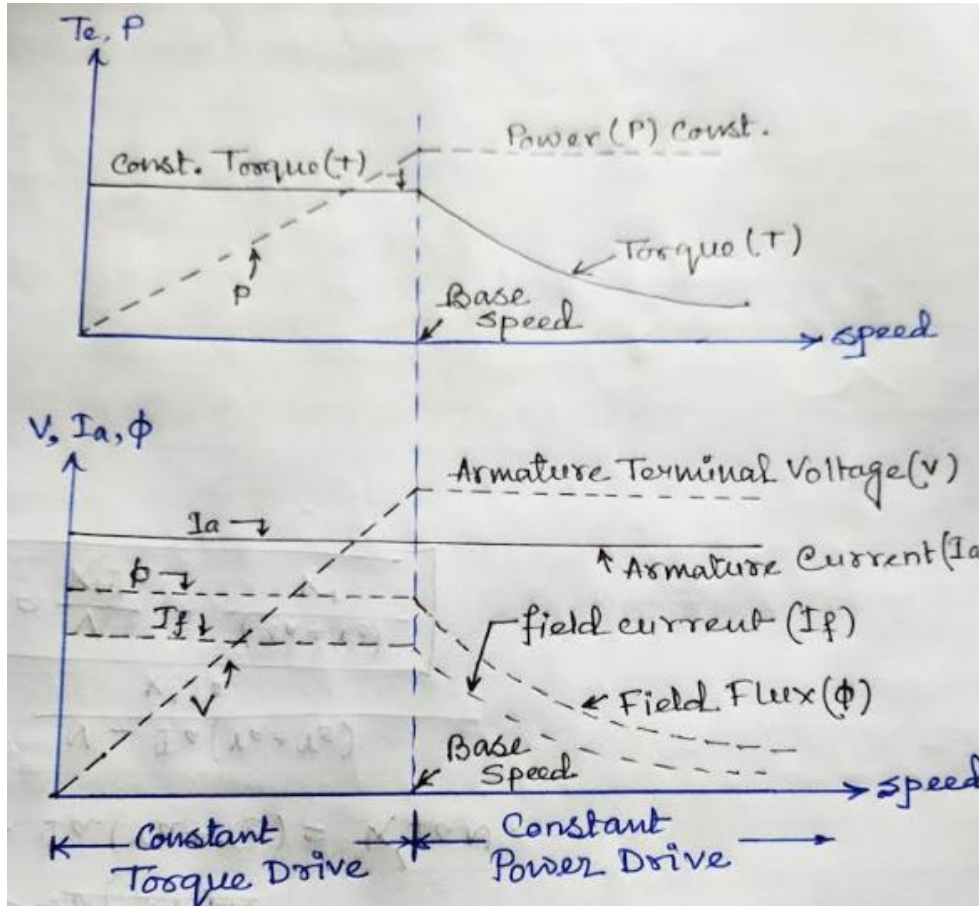 Te, P
Power (P) Const.
Const. Torque (T)
Torque (T)
P
Base
speed
speed
V, Ia, ϕ
Armature Terminal Voltage (V)
Ia
Armature Current (Ia
ϕ
If
field current (If)
Field Flux (ϕ)
V
Base
Speed
speed
Constant
Torque Drive
Constant
Power Drive